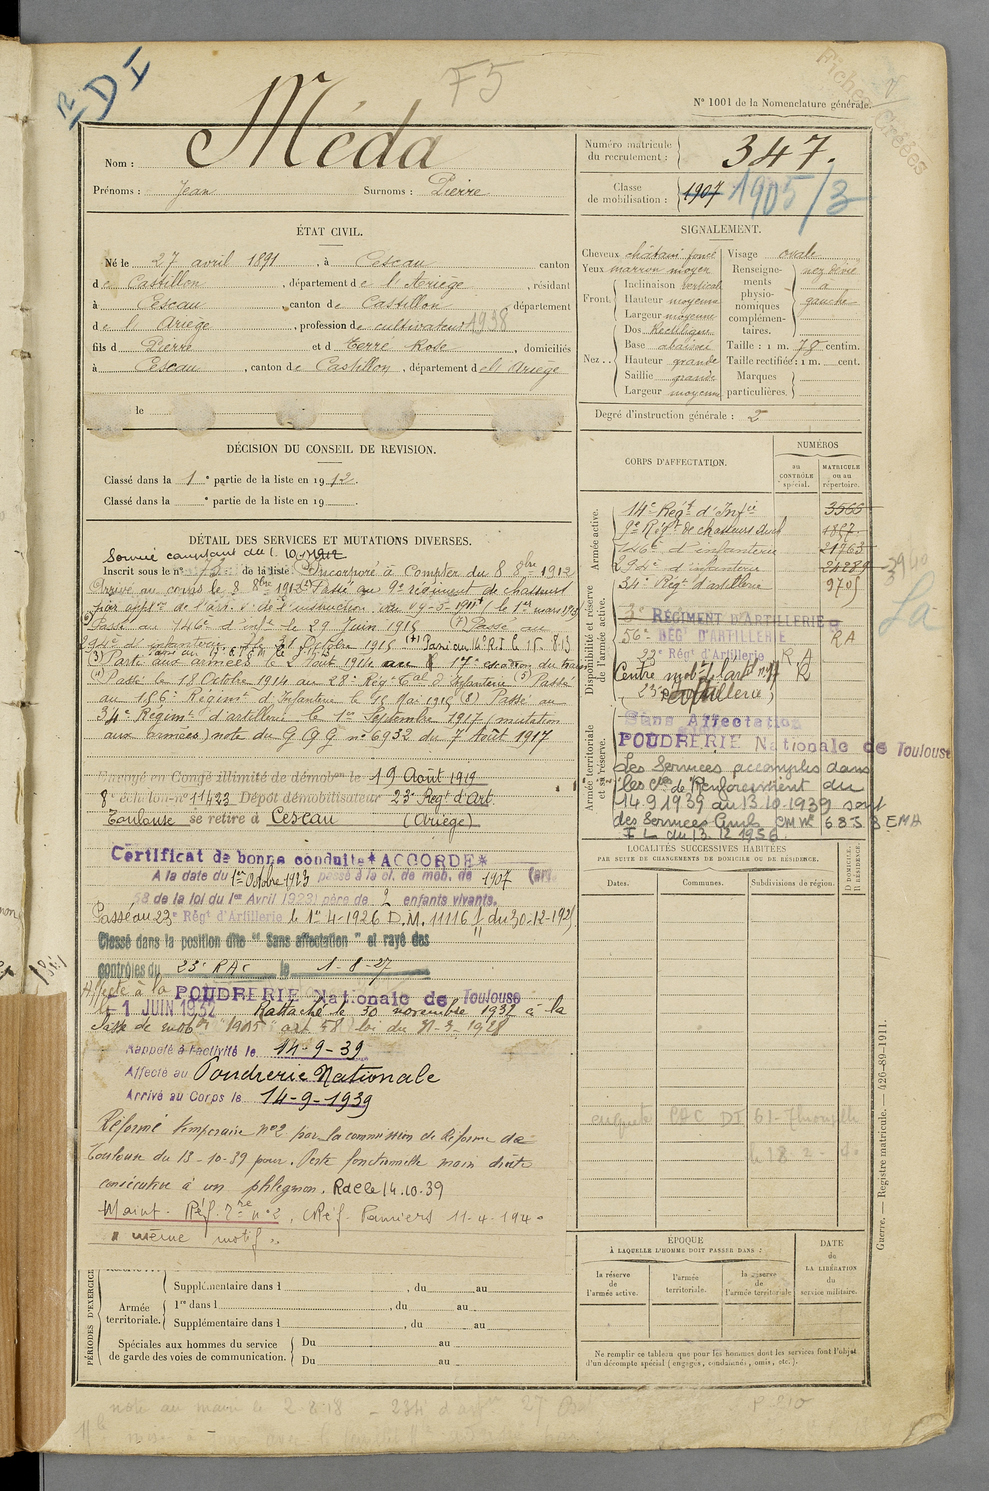 F5
N° 1001 de la Nomenclature générale.
Fiches Créées
Nom : Méda
Prénoms : Jean Surnoms : Pierre
Numéro matricule du recrutement : 347.
Classe de mobilisation : 1907 1905/3
ÉTAT CIVIL.
Né le 27 avril 1891, à Cescau canton
de Castillon, département de l'Ariège, résidant
à Cescau, canton de Castillon, département
de l'Ariège, profession de cultivateur 1938
fils d Pierre et d Terré Rose, domiciliés
à Cescau, canton de Castillon, département de l'Ariège
le
SIGNALEMENT.
Cheveux châtain foncé
Yeux marron moyen
Front. Inclinaison verticale
Hauteur moyenne
Largeur moyenne
Nez. Dos Rectiligne
Base abaissée
Hauteur grande
Saillie grande
Largeur moyenne
Visage ovale
Renseignements physionomiques complémentaires. nez dévié à gauche
Taille : 1 m. 78 centim.
Taille rectifiée : 1 m. cent.
Marques particulières.
Degré d'instruction générale : 2
DÉCISION DU CONSEIL DE REVISION.
Classé dans la 1e partie de la liste en 1912.
Classé dans la e partie de la liste en 19
CORPS D'AFFECTATION.
NUMÉROS
au CONTRÔLE spécial.
MATRICULE ou au répertoire.
Armée active.
14e Régt d'Infie 3565
9e Régt de chasseurs
146e d'infanterie 21763
294e d'infanterie 24289
34e Régt d'artillerie 9705
Disponibilité et réserve de l'armée active.
3e RÉGIMENT D'ARTILLERIE
56e RÉGt D'ARTILLERIE RA
23e Régt d'Artillerie R.A
Centre mobr d'art n° 17 R
23e Artillerie
Armée territoriale et sa réserve.
Sans Affectation
POUDRERIE Nationale de Toulouse
Les Services accomplis dans
les Cies de Renforcement du
14.9.1939 au 13.10.1939 sont
des Services Civils CM N° 6853 EMA
I L du 13.12.1956.
DÉTAIL DES SERVICES ET MUTATIONS DIVERSES.
Service comptant du 1.10.1912
Inscrit sous le n° de la liste Incorporé à Compter du 8 8bre 1912
Arrivé au corps le 8 8bre 1912 Passé au 9e régiment de chasseurs
Passé au 146e d'inft le 29 Juin 1915 (7) Passé au
294e d'infanterie le 31 Octobre 1916
(3) Parti aux armées le 2 Août 1914 au 17e escadron du train
(4) Passé le 18 Octobre 1914 au 28e Régt Cal d'Infanterie (5) Passé
au 156e Régimt d'Infanterie le 15 Mai 1915 (8) Passé au
34e Régimt d'artillerie le 1er Septembre 1917 (mutation
aux armées) note du G Q G n° 6932 du 7 Août 1917
Envoyé en Congé illimité de démobon le 19 Août 1919
8e échelon n° 11423 Dépôt démobilisateur 23e Regt d'Art
Toulouse se retire à Cescau (Ariège)
Certificat de bonne conduite * ACCORDÉ *
A la date du 1er Octobre 1923 passé à la cl. de mob. de 1907 (art.
58 de la loi du 1er Avril 1923) père de 2 enfants vivants.
Passé au 23e Régt d'Artillerie le 1er 4-1926 D.M. 11116 du 30-12-1925
Classé dans la position dite "Sans affectation" et rayé des
contrôles du 23e RAC le 1-8-27
Affecté à la POUDRERIE Nationale de Toulouse
le 1 JUIN 1932 Rattaché le 30 novembre 1932 à la
classe de mobon 1905 art 58 loi du 31-3 1928
Rappelé à l'activité le 14-9-39
Affecté au Poudrerie Nationale
Arrivé au Corps le 14-9-1939
Réformé temporaire n°2 par la commission de Réforme de
Toulouse du 13-10-39 pour. Perte fonctionnelle main droite
consécutive à un phlegmon. R de le 14.10.39
Maint. Réf. Tre n°2. CRéf. Pamiers 11-4-1940
" même motif "
LOCALITÉS SUCCESSIVES HABITÉES
PAR SUITE DE CHANGEMENTS DE DOMICILE OU DE RÉSIDENCE.
Dates. Communes. Subdivisions de région.
D DOMICILE. R RÉSIDENCE.
enquete
PÉRIODES D'EXERCICES
Supplémentaire dans l , du au
Armée territoriale.
1re dans l , du au
Supplémentaire dans l , du au
Spéciales aux hommes du service de garde des voies de communication.
Du au
Du au
ÉPOQUE
À LAQUELLE L'HOMME DOIT PASSER DANS :
la réserve de l'armée active.
l'armée territoriale.
la réserve de l'armée territoriale
DATE de LA LIBÉRATION du service militaire.
Ne remplir ce tableau que pour les hommes dont les services font l'objet
d'un décompte spécial (engagés, condamnés, omis, etc.).
Guerre. — Registre matricule. — 426-89-1911.